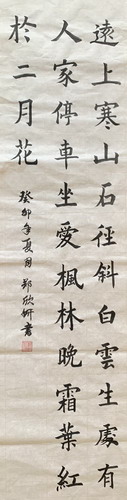 遠上寒山石徑斜白雲生處有
人家停車坐愛楓林晚霜葉紅
於二月花
癸卯年夏月鄭欣妍書